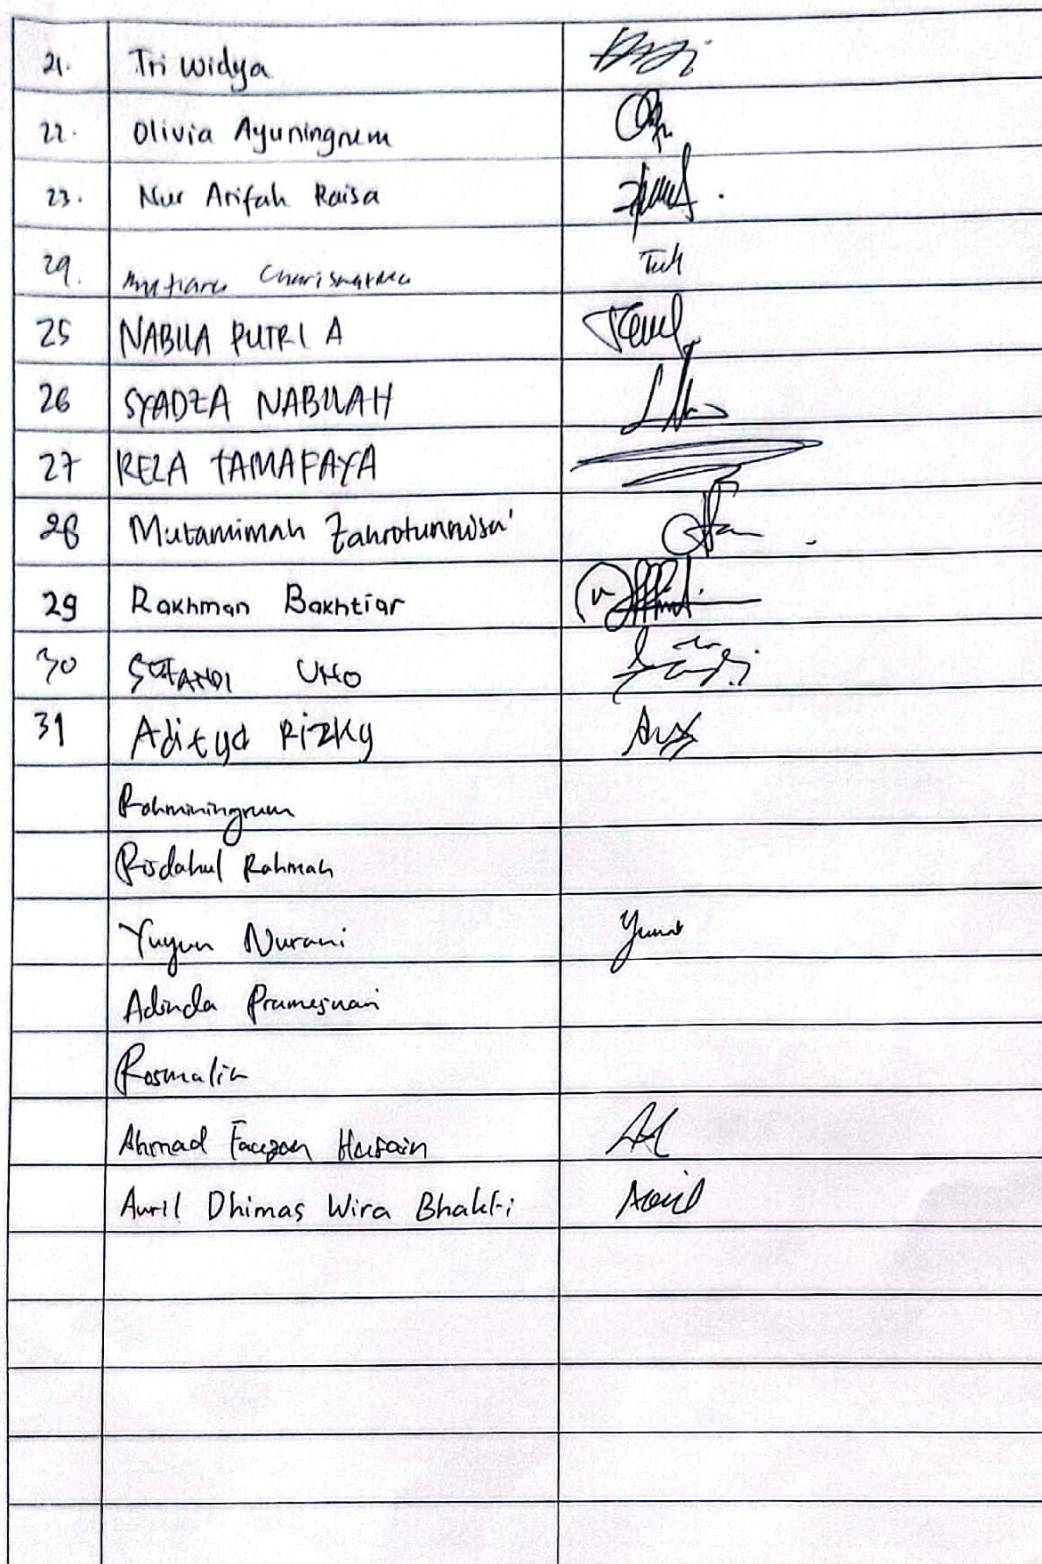 21. Tri widya
22. Olivia Ayuningrum
23. Nur Arifah Raisa
24.
25 NABILA PUTRI A
26 SYADZA NABILAH
27 REZA TAMAFAYA
28 Mutamimah Zahrotunnisa'
29 Rakhman Bakhtiar
30 UNO
31 Aditya Rizky
Rohminingrum
Risdahul Rahmah
Yuyun Nurani Yunat
Adinda Pramesuari
Rosmalia
Ahmad Fauzan Husain
Avril Dhimas Wira Bhakti Avril